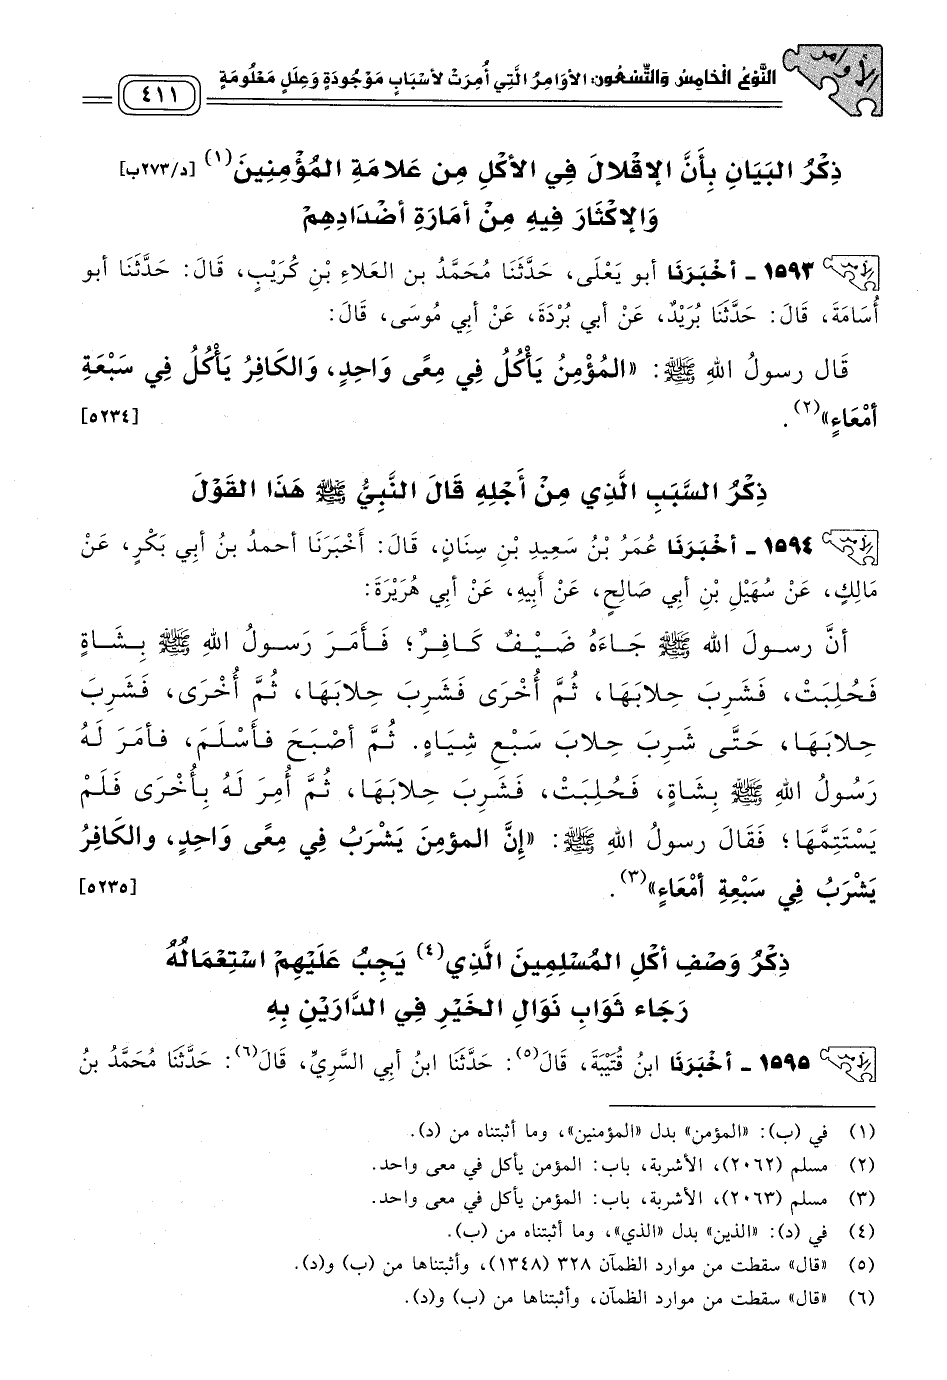 الأوامر
النَّوْعُ الْخَامِسُ وَالتِّسْعُون: الأوَامِرُ الَّتِي أُمِرَتْ لأسْبَابٍ مَوْجُودَةٍ وَعِلَلٍ مَعْلُومَةٍ
٤١١
ذِكْرُ البَيَانِ بِأَنَّ الإقْلالَ فِي الأكْلِ مِن عَلامَةِ المُؤْمِنِينَ(١) [د/٢٧٣ب]
وَالإكْثَارَ فِيهِ مِنْ أمَارَةِ أضْدَادِهِمْ
١٥٩٣ - أخْبَرَنَا أبو يَعْلَى، حَدَّثَنَا مُحَمَّدُ بن العَلاءِ بْنِ كُرَيْبٍ، قَالَ: حَدَّثَنَا أبو
أُسَامَةَ، قَالَ: حَدَّثَنَا بُرَيْدٌ، عَنْ أبي بُرْدَةَ، عَنْ أبِي مُوسَى، قَالَ:
قَال رسولُ اللهِ ﷺ: «المُؤْمِنُ يَأْكُلُ فِي مِعًى وَاحِدٍ، وَالكَافِرُ يَأْكُلُ فِي سَبْعَةِ
أمْعَاءٍ»(٢). [٥٢٣٤]
ذِكْرُ السَّبَبِ الَّذِي مِنْ أَجْلِهِ قَالَ النَّبِيُّ ﷺ هَذَا القَوْلَ
١٥٩٤ - أخْبَرَنَا عُمَرُ بْنُ سَعِيدِ بْنِ سِنَانٍ، قَالَ: أَخْبَرَنَا أحمدُ بنُ أبي بَكْرٍ، عَنْ
مَالِكٍ، عَنْ سُهَيْلِ بْنِ أبي صَالِحٍ، عَنْ أَبِيهِ، عَنْ أبي هُرَيْرَةَ:
أنَّ رسولَ الله ﷺ جَاءَهُ ضَيْفٌ كَافِرٌ؛ فَأمَرَ رَسولُ اللهِ ﷺ بِشَاةٍ
فَحُلِبَتْ، فَشَرِبَ حِلابَهَا، ثُمَّ أُخْرَى فَشَرِبَ حِلابَهَا، ثُمَّ أُخْرَى، فَشَرِبَ
حِلابَهَا، حَتَّى شَرِبَ حِلابَ سَبْعِ شِيَاهٍ. ثُمَّ أصْبَحَ فأَسْلَمَ، فأمَرَ لَهُ
رَسُولُ اللهِ ﷺ بِشَاةٍ، فَحُلِبَتْ، فَشَرِبَ حِلابَهَا، ثُمَّ أُمِرَ لَهُ بِأُخْرَى فَلَمْ
يَسْتَتِمَّهَا؛ فَقَالَ رسولُ اللهِ ﷺ: «إنَّ المؤمِنَ يَشْرَبُ فِي مِعًى وَاحِدٍ، والكَافِرُ
يَشْرَبُ فِي سَبْعَةِ أمْعَاءٍ»(٣). [٥٢٣٥]
ذِكْرُ وَصْفِ أكْلِ المُسْلِمِينَ الَّذِي(٤) يَجِبُ عَلَيْهِمْ اسْتِعْمَالُهُ
رَجَاءَ ثَوَابِ نَوَالِ الخَيْرِ فِي الدَّارَيْنِ بِهِ
١٥٩٥ - أخْبَرَنَا ابنُ قُتَيْبَةَ، قَالَ(٥): حَدَّثَنَا ابنُ أبي السَّرِيِّ، قَالَ(٦): حَدَّثَنَا مُحَمَّدُ بنُ
(١) في (ب): «المؤمن» بدل «المؤمنين»، وما أثبتناه من (د).
(٢) مسلم (٢٠٦٢)، الأشربة، باب: المؤمن يأكل في معى واحد.
(٣) مسلم (٢٠٦٣)، الأشربة، باب: المؤمن يأكل في معى واحد.
(٤) في (د): «الذين» بدل «الذي»، وما أثبتناه من (ب).
(٥) «قال» سقطت من موارد الظمآن ٣٢٨ (١٣٤٨)، وأثبتناها من (ب) و(د).
(٦) «قال» سقطت من موارد الظمآن، وأثبتناها من (ب) و(د).